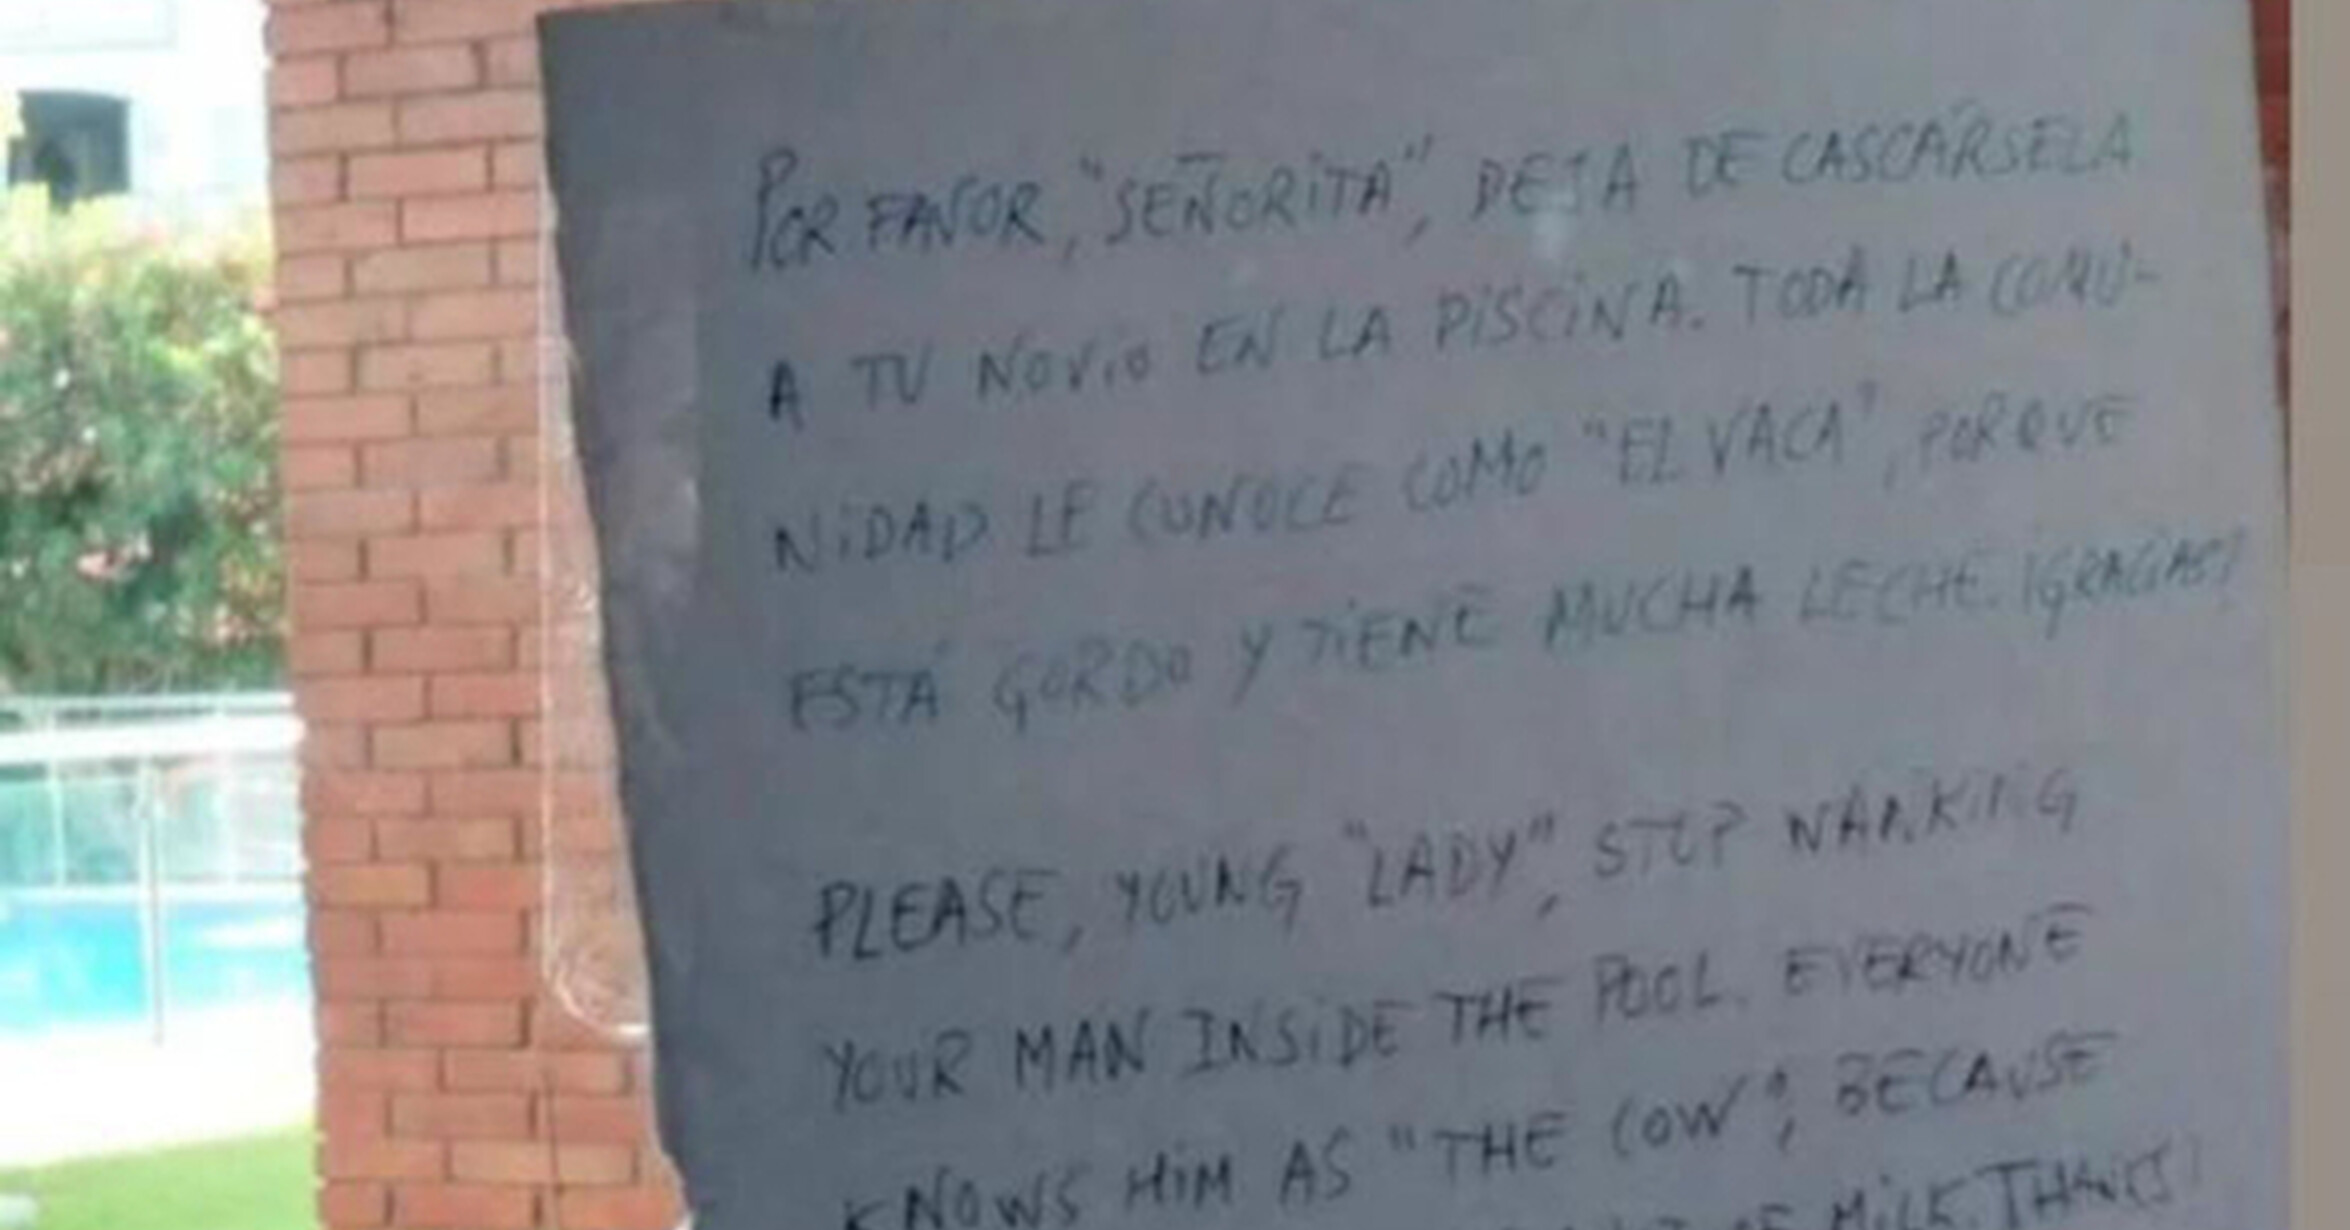 POR FAVOR, "SEÑORITA", DEJA DE CASCÁRSELA
A TU NOVIO EN LA PISCINA. TODA LA COMU-
NIDAD LE CONOCE COMO "EL VACA", PORQUE
ESTÁ GORDO Y TIENE MUCHA LECHE. ¡GRACIAS!
PLEASE, YOUNG "LADY", STOP WANKING
YOUR MAN INSIDE THE POOL. EVERYONE
KNOWS HIM AS "THE COW", BECAUSE
OF MILK. THANKS!